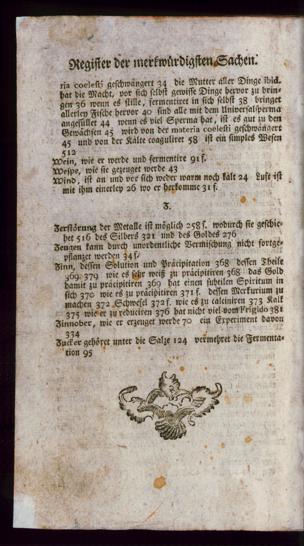 Register der merkwürdigsten Sachen.
ria coelesti geschwängert 34 die Mutter aller Dinge ibid.
hat die Macht, vor sich selbst gewisse Dinge hervor zu brin-
gen 36 wenn es stille, fermentiret in sich selbst 38 bringet
allerley Fische hervor 40 sind alle mit dem Universalsperma
angefüllet 44 wenn es viel Sperma hat, ist es gut zu den
Gewächsen 45 wird von der materia coelesti geschwängert
45 und von der Kälte coaguliret 58 ist ein simples Wesen
512
Wein, wie er werde und fermentire 91 f.
Wespe, wie sie gezeuget werde 43
Wind, ist an und vor sich weder warm noch kalt 24 Luft ist
mit ihm einerley 26 wo er herkomme 31 f.
Z.
Zerstörung der Metalle ist möglich 258 f. wodurch sie geschie-
het 516 des Silbers 321 und des Goldes 276
Zeugen kann durch unordentliche Vermischung nicht fortge-
pflanzet werden 34
Zinn, dessen Solution und Präcipitation 368 dessen Theile
369. 379 wie es sehr weiß zu präcipitiren 368 das Gold
damit zu präcipitiren 369 hat einen subtilen Spiritum in
sich 370 wie es zu präcipitiren 371 f. dessen Mercurium zu
machen 372 Schwefel 372 f. wie es zu calciniren 373 Kalk
375 wie er zu reduciren 376 hat nicht viel vom Frigido 381
Zinnober, wie er erzeuget werde 70 ein Experiment davon
334
Zucker gehöret unter die Salze 124 vermehret die Fermenta-
tion 95